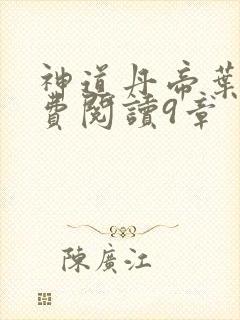 神道丹帝葉
費閱讀9章
陳廣江